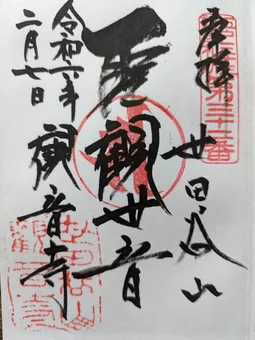 奉拝
第三十二番
世田谷山
聖観世音
観音寺
令和二年
二月七日